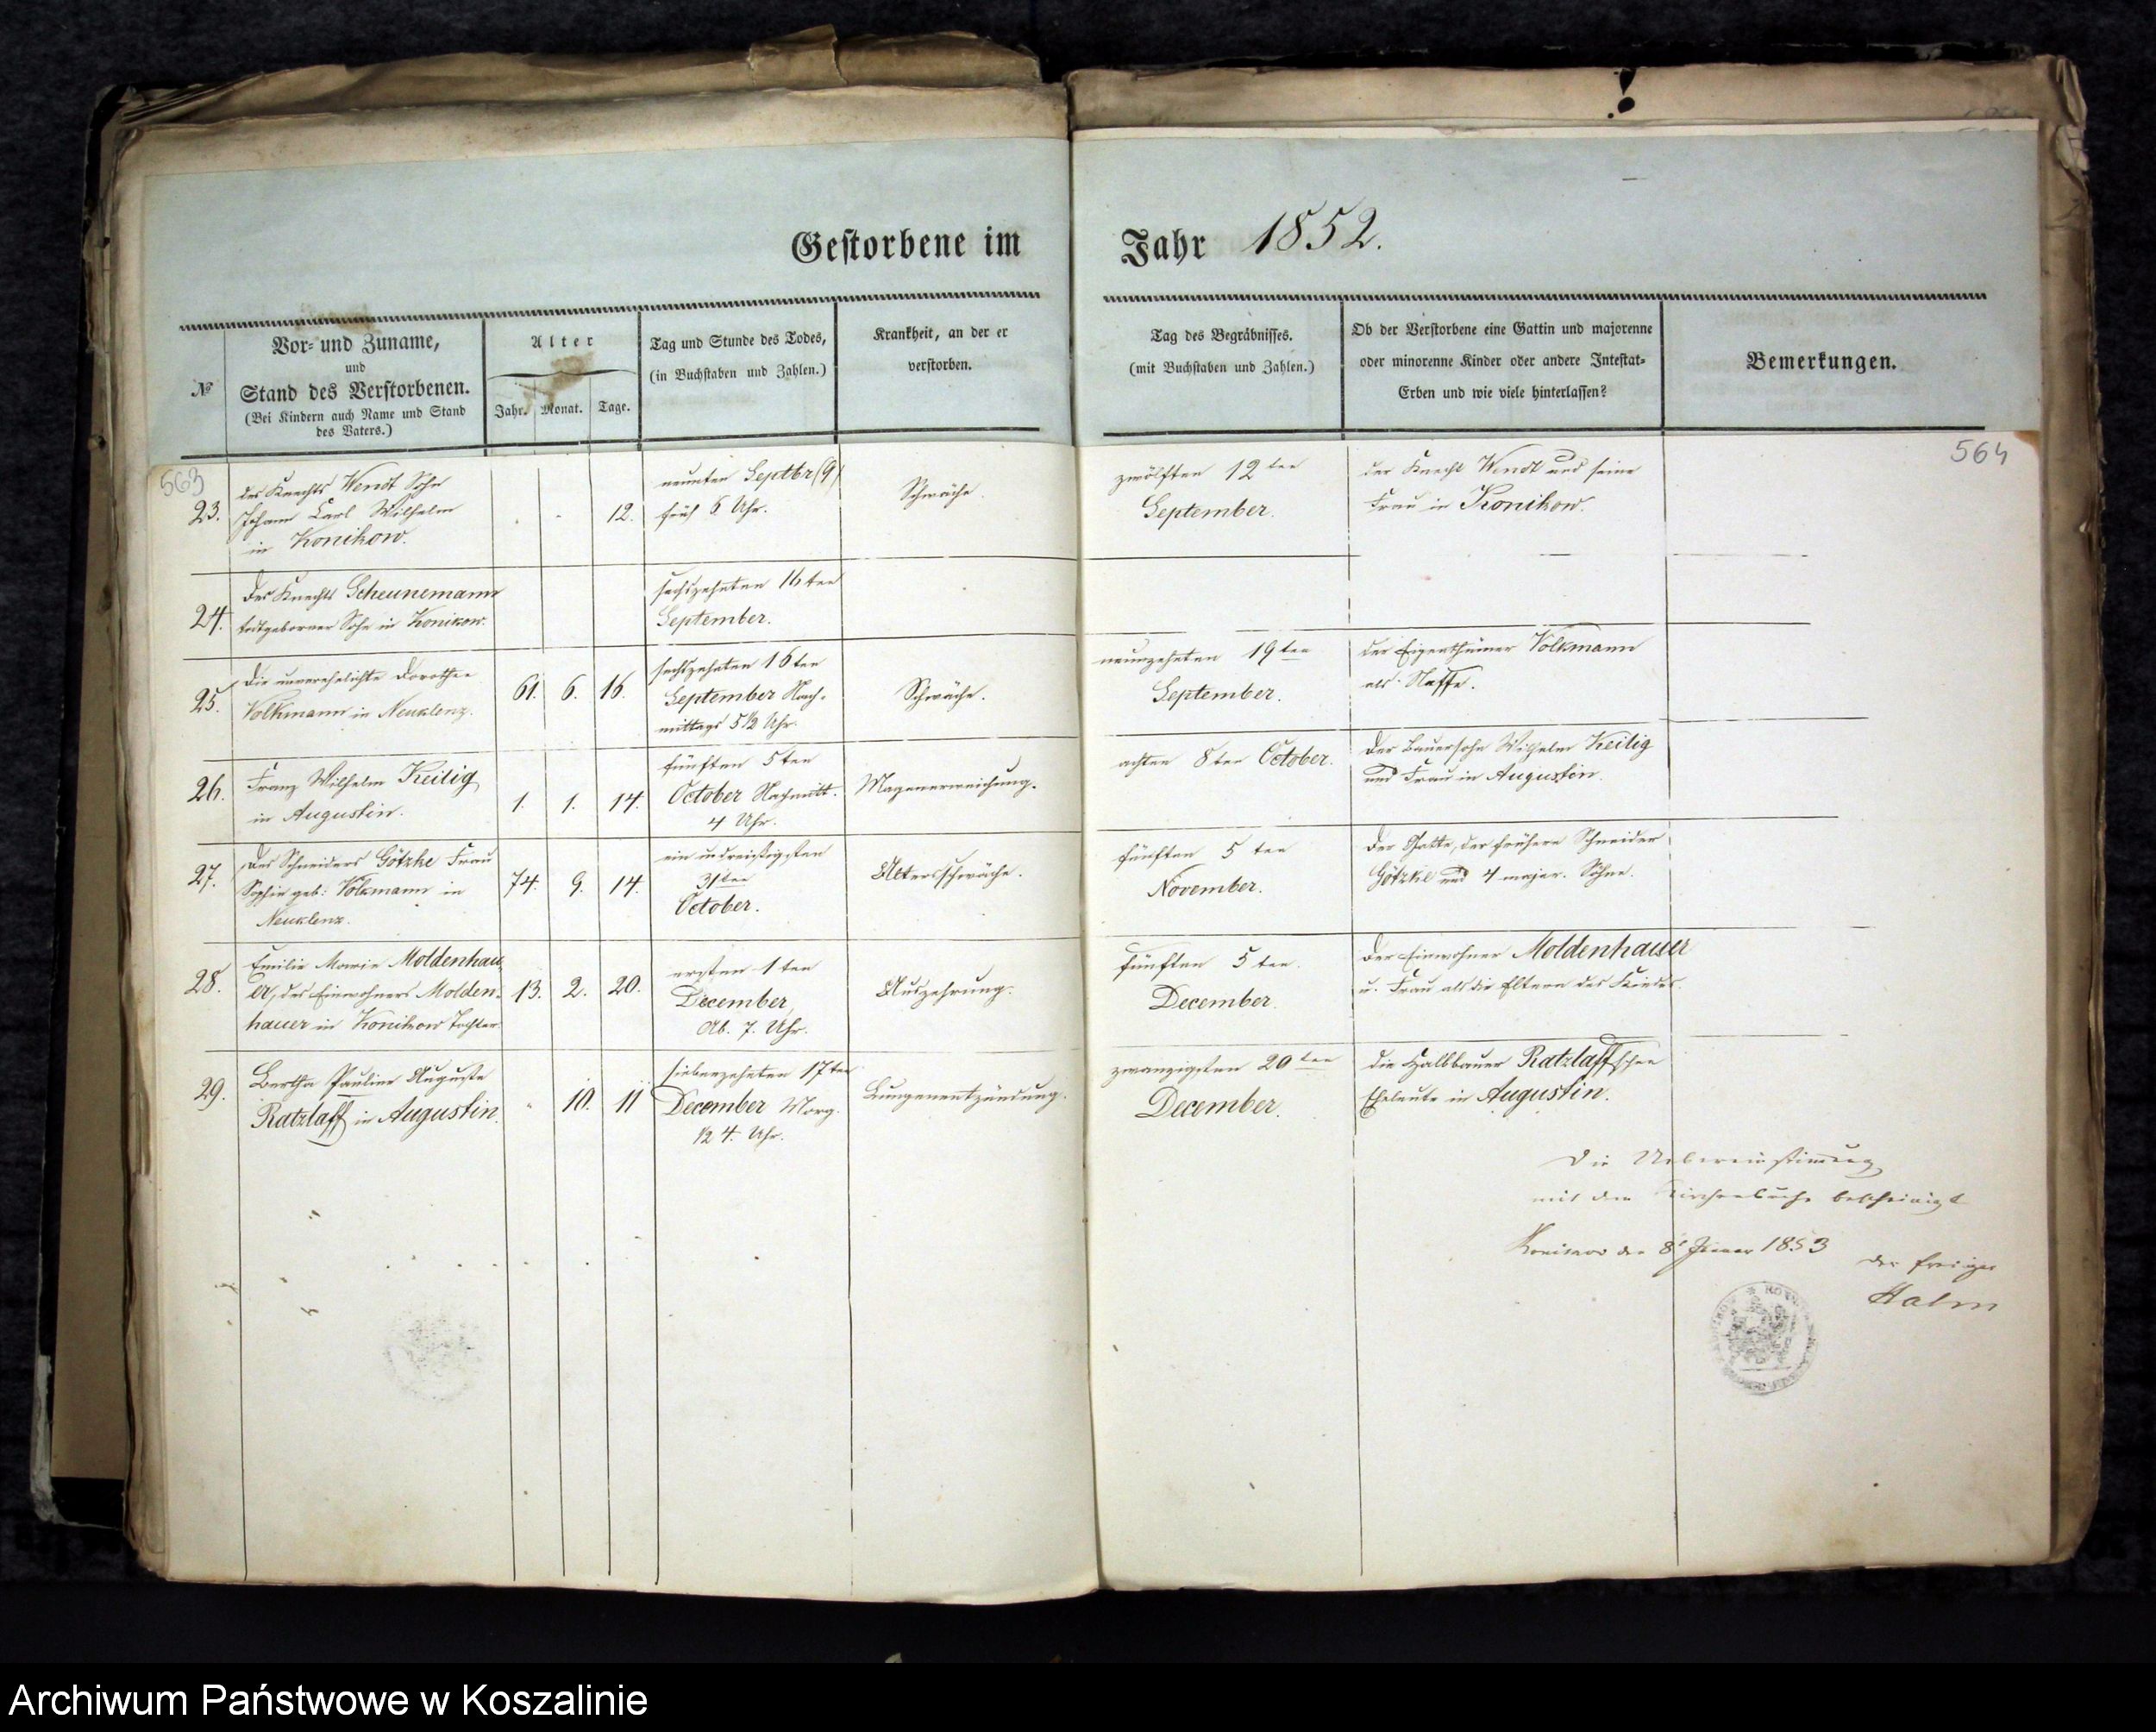 Gestorbene im
Jahr 1852.
№
Vor- und Zuname,
und
Stand des Verstorbenen.
(Bei Kindern auch Name und Stand
des Vaters.)
Alter
Jahr.
Monat.
Tage.
Tag und Stunde des Todes,
(in Buchstaben und Zahlen.)
Krankheit, an der er
verstorben.
Tag des Begräbnisses.
(mit Buchstaben und Zahlen.)
Ob der Verstorbene eine Gattin und majorenne
oder minorenne Kinder oder andere Intestat-
Erben und wie viele hinterlassen?
Bemerkungen.
563
564
23.
des Knechts Wendt Sohn
Johann Carl Wilhelm
in Konikow.
12.
neunten Septbr (9)
früh 6 Uhr.
Schwäche.
zwölften 12ten
September.
der Knecht Wendt und seine
Frau in Konikow.
24.
des Knechts Scheunemann
todtgeborner Sohn in Konikow.
sechszehnten 16ten
September.
25.
die unverehelichte Dorothee
Volkmann in Neuklenz.
61. 6. 16.
sechszehnten 16ten
September Nach-
mittags 5½ Uhr.
Schwäche.
neunzehnten 19ten
September.
der Eigenthümer Volkmann
als Neffe.
26.
Franz Wilhelm Keilig
in Augustin.
1. 1. 14.
fünften 5ten
October Nachmitt.
4 Uhr.
Magenerweichung.
achten 8ten October.
der Bauersohn Wilhelm Keilig
und Frau in Augustin.
27.
des Schneiders Götzke Frau
Sophie geb: Volkmann in
Neuklenz.
74. 9. 14.
ein u dreißigsten
31ten
October.
Altersschwäche.
fünften 5ten
November.
der Gatte, der frühere Schneider
Götzke und 4 major. Söhne.
28.
Emilie Marie Moldenhau-
er, des Einwohners Molden-
hauer in Konikow Tochter.
13. 2. 20.
ersten 1ten
December
Ab. 7. Uhr.
Auszehrung.
fünften 5ten.
December.
der Einwohner Moldenhauer
u. Frau als die Eltern des Kindes.
29.
Bertha Pauline Auguste
Ratzlaff in Augustin.
10. 11
siebenzehnten 17ten
December Morg.
½ 4. Uhr.
Lungenentzündung.
zwanzigsten 20ten
December.
die Halbbauer Ratzlaffschen
Eheleute in Augustin.
Die Uebereinstimmung
mit dem Kirchenbuche bescheinigt
Konikow den 8t Januar 1853
Halm
Archiwum Państwowe w Koszalinie